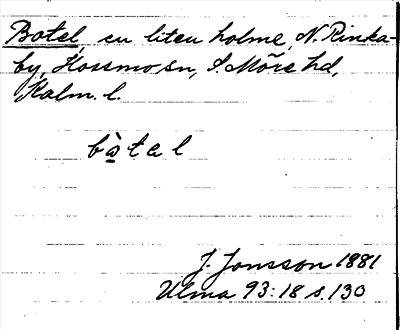 Botel, en liten holme, N. Rinka-
by, Hossmo sn, S. Möre hd,
Kalm. l.
bòtal
J. Jonsson 1881
Ulma 93:18 s. 130